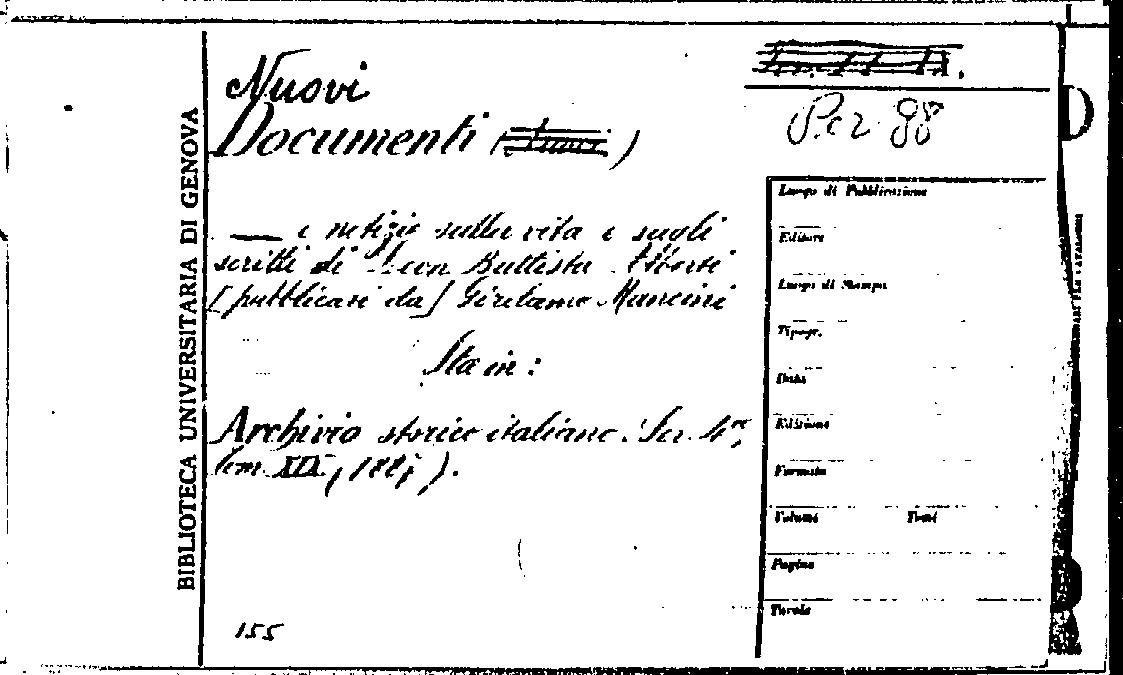 BIBLIOTECA UNIVERSITARIA DI GENOVA
Nuovi
Documenti ( )
Per 98
— e notizie sulla vita e sugli
scritti di Leon Battista Alberti
[pubblicari da] Girolamo Mancini
Sta in:
Archivio storico italiano. Ser. 4ª,
tom. XIX, 1887).
155
Luogo di Pubblicazione
Editore
Luogo di Stampa
Tipogr.
Data
Edizione
Formato
Volumi Tomi
Pagine
Tavole